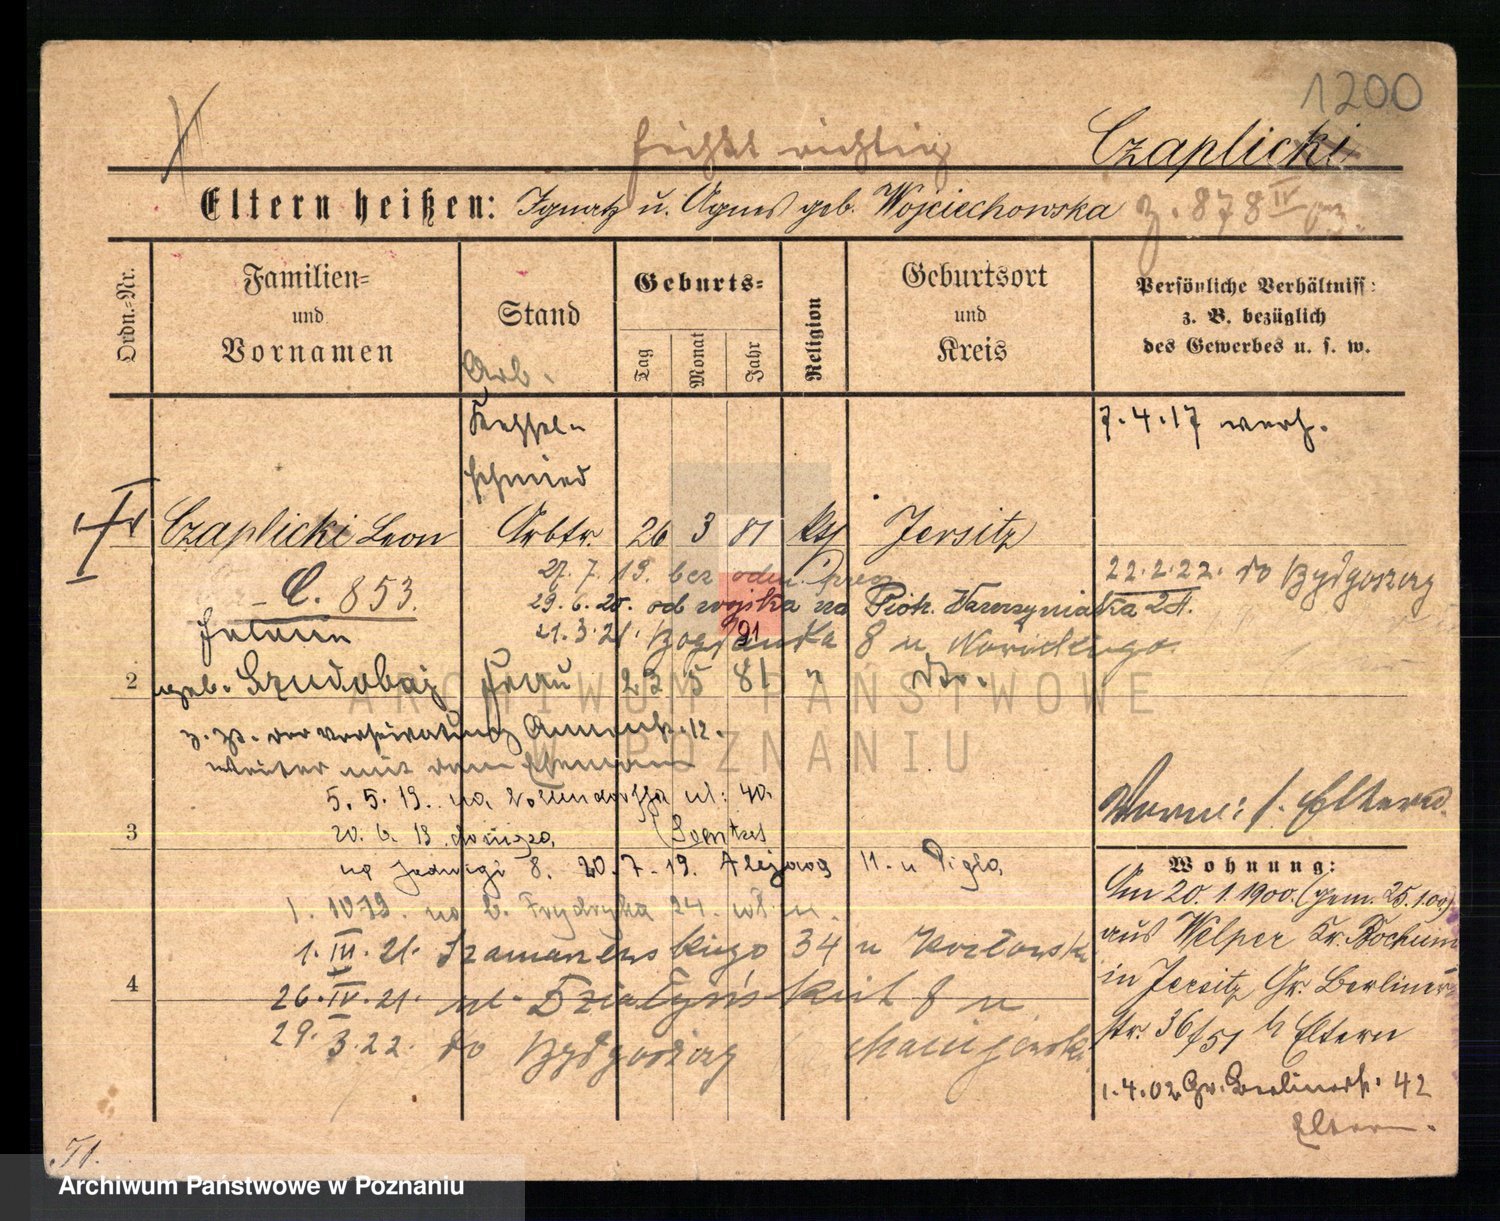 1200
richtig Czaplicki
Eltern heißen: Ignatz u. Agnes geb. Wojciechowska Z. 878 IV 03.
Ordn.-Nr.
Familien- und Vornamen
Stand
Geburts-
Tag
Monat
Jahr
Religion
Geburtsort und Kreis
Persönliche Verhältniss:
z. B. bezüglich
des Gewerbes u. s. w.
Arb.
Kessel-
schmied
7.4.17 verh.
Czaplicki Leon Arbtr. 26 3 81 kth Jersitz
27.7.19. bez odm.
22.2.22. do Bydgoszczy
C. 853.
29.6.20. od wojska na Piotr. Wawrzyniaka 21.
21.3.21. 8 u
91
2 geb. Szudobaj Frau 23 5 81 " do.
z. Zt. der Verheiratung
weiter mit dem Ehemann
5.5.19. na ul: 40.
Vorm: s. Eltern
3 20.6.19
na Jadwigi 8. 20.7.19. Alejowa 11. u Pigla
Wohnung:
Am 20.1.1900. (gem. 25.1.00)
1.1019. na b. Frydryka 24.
aus Welper Kr. Bochum
1.III.21. Szamarzewskiego 34 u
in Jersitz Gr. Berliner-
4 26.IV.21. ul. Działyńskich 8 u
str. 36/51 b Eltern
29.3.22. do Bydgoszczy
1.4.02 Gr. Berlinerstr. 42
Eltern.
ARCHIWUM PAŃSTWOWE
W POZNANIU
Archiwum Państwowe w Poznaniu